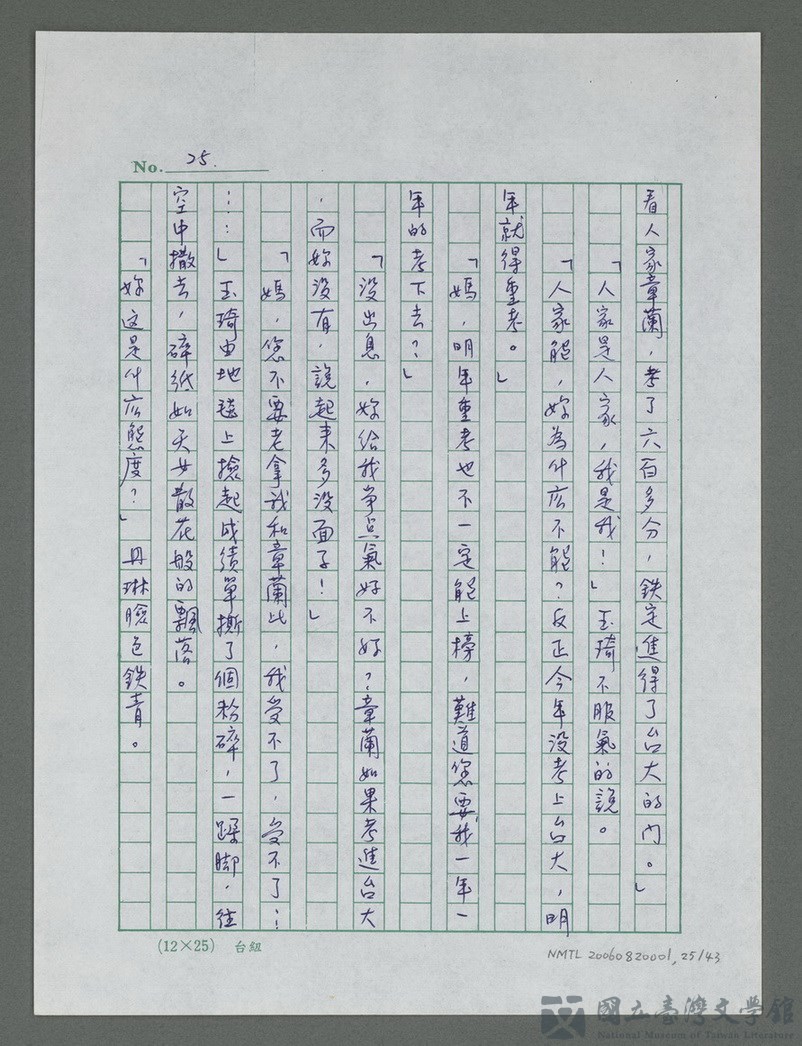 No. 25.
看人家章蘭，考了六百多分，鉄定進得了台大的门。」
「人家是人家，我是我！」玉琦不服氣的說。
「人家能，妳為什広不能？反正今年沒考上台大，明
年就得重考。」
「媽，明年重考也不一定能上榜，難道您要我一年一
年的考下去？」
「沒出息，妳給我爭点氣好不好？章蘭如果考進台大
，而妳沒有，說起来多沒面子！」
「媽，您不要老拿我和章蘭比，我受不了，受不了…
…」玉琦由地毯上撿起成績單撕了個粉碎，一跺脚，往
空中撒去，碎紙如天女散花般的飄落。
「妳这是什広態度？」丹琳臉色鉄青。
(12×25) 台組
NMTL 20060820001, 25/43
國立臺灣文學館
National Museum of Taiwan Literature